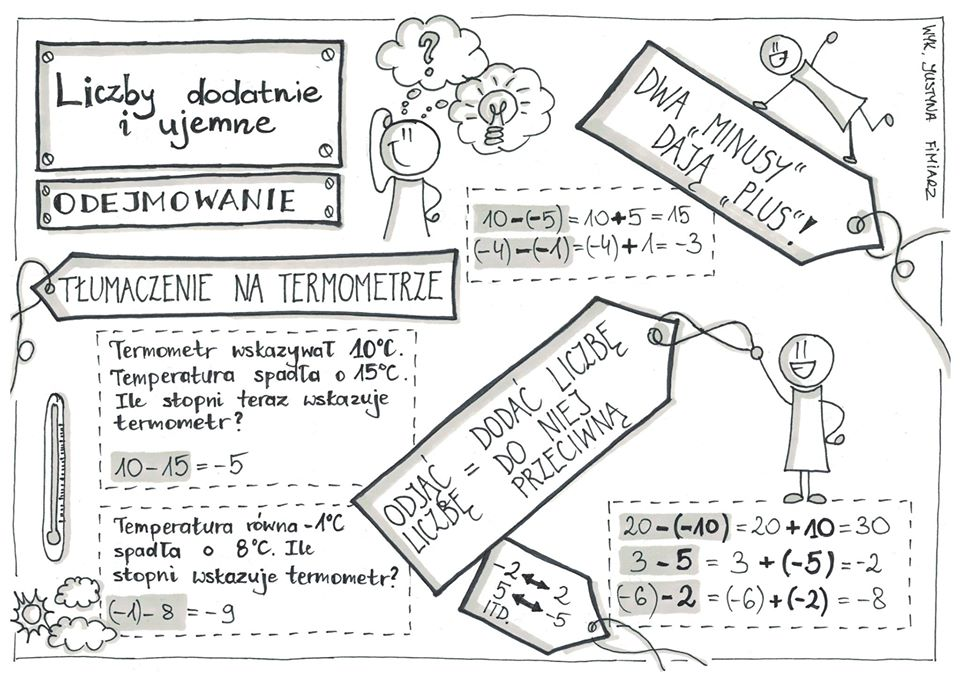 Liczby dodatnie
i ujemne
ODEJMOWANIE
?
DWA „MINUSY”
DAJĄ „PLUS”!
WYK. JUSTYNA FIMIARZ
10-(-5)=10+5=15
(-4)-(-1)=(-4)+1=-3
TŁUMACZENIE NA TERMOMETRZE
Termometr wskazywał 10°C.
Temperatura spadła o 15°C.
Ile stopni teraz wskazuje
termometr?
10-15=-5
Temperatura równa -1°C
spadła o 8°C. Ile
stopni wskazuje termometr?
(-1)-8=-9
ODJĄĆ = DODAĆ LICZBĘ
LICZBĘ DO NIEJ
PRZECIWNĄ
-2 ↔ 2
5 ↔ -5
ITD.
20-(-10)=20+10=30
3-5=3+(-5)=-2
(-6)-2=(-6)+(-2)=-8